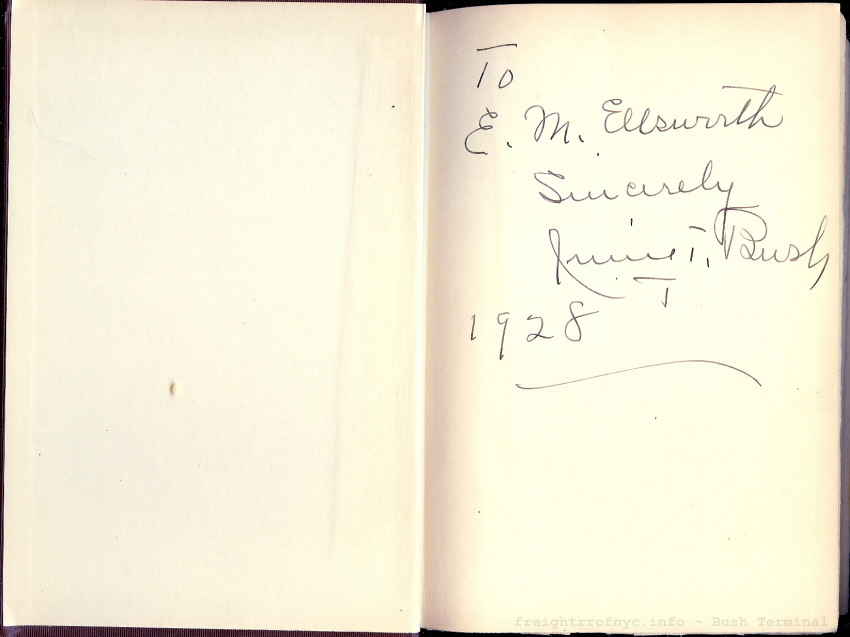 To
E. M. Ellsworth
Sincerely
Irving T. Bush
T
1928
freightrrofnyc.info ~ Bush Terminal